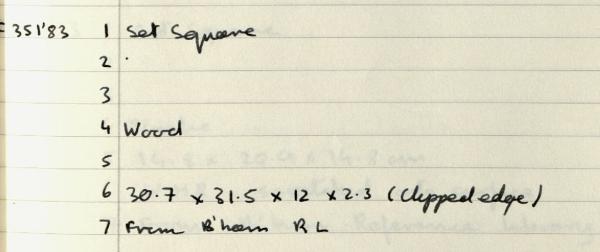 351'83 1 Set Square
2
3
4 Wood
5
6 30.7 x 31.5 x 12 x 2.3 (Clipped edge)
7 From B'ham R L
14.8 x 20.9 x 14.8 cm